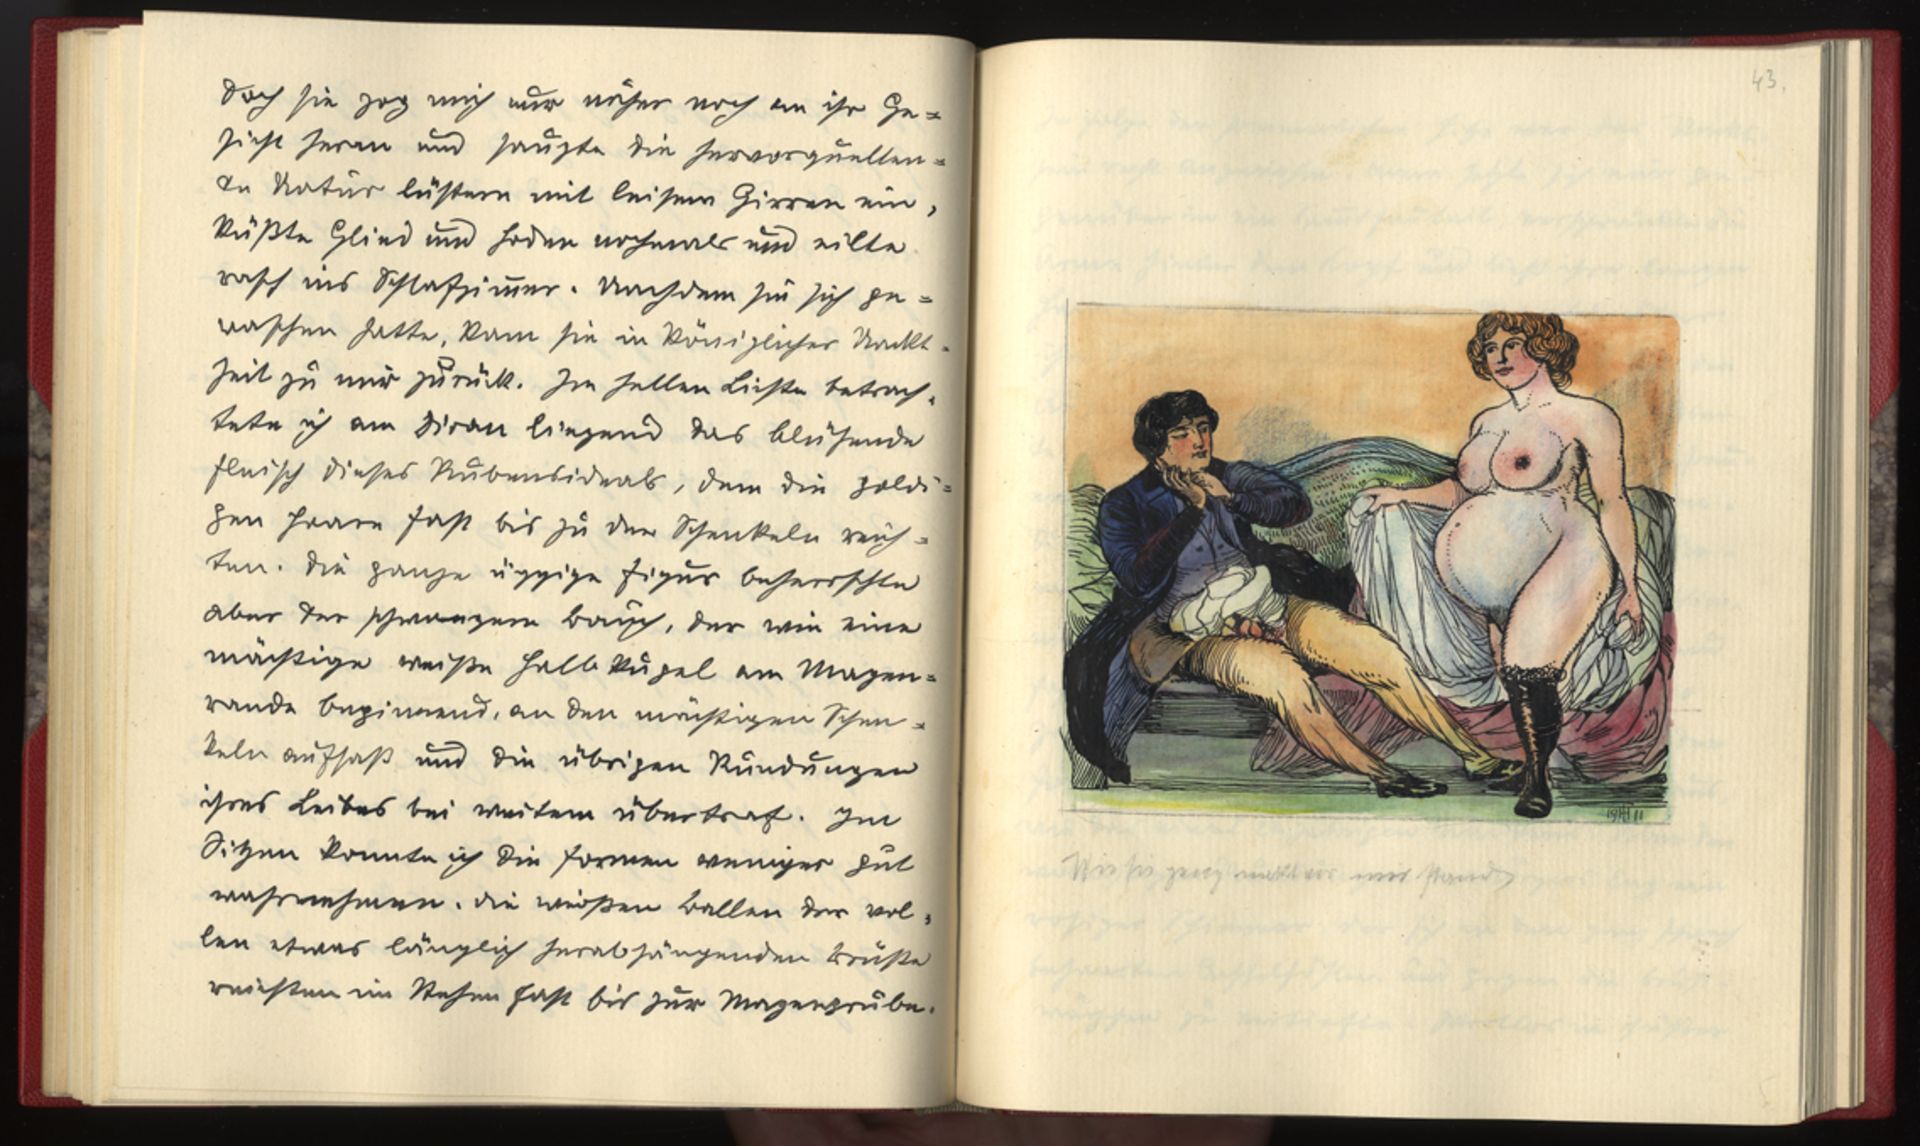 Doch sie zog mich nur näher noch an ihr Ge=
sicht heran und saugte die hervorquellen=
de Natur lüstern mit leisem Girren ein,
küßte Glied und Hoden nochmals und eilte
rasch ins Schlafzimmer. Nachdem sie sich ge=
waschen hatte, kam sie in königlicher Nackt-
heit zu mir zurück. Im hellen Lichte betrach-
tete ich am Divan liegend das blühende
Fleisch dieses Rubensideals, dem die goldi=
gen Haare fast bis zu den Schenkeln reich=
ten. Die ganze üppige Figur beherrschte
aber der schwangere Bauch, der wie eine
mächtige weiße Halbkugel am Magen=
rande beginnend, an den mächtigen Schen=
keln aufsaß und die übrigen Rundungen
ihres Leibes bei weitem übertraf. Im
Sitzen konnte ich die Formen weniger gut
wahrnehmen. Die weißen Ballen der vol-
len etwas länglich herabhängenden Brüste
reichten im Stehen fast bis zur Magengrube.
43.
19 11
Wie sie ganz nackt vor mir stand